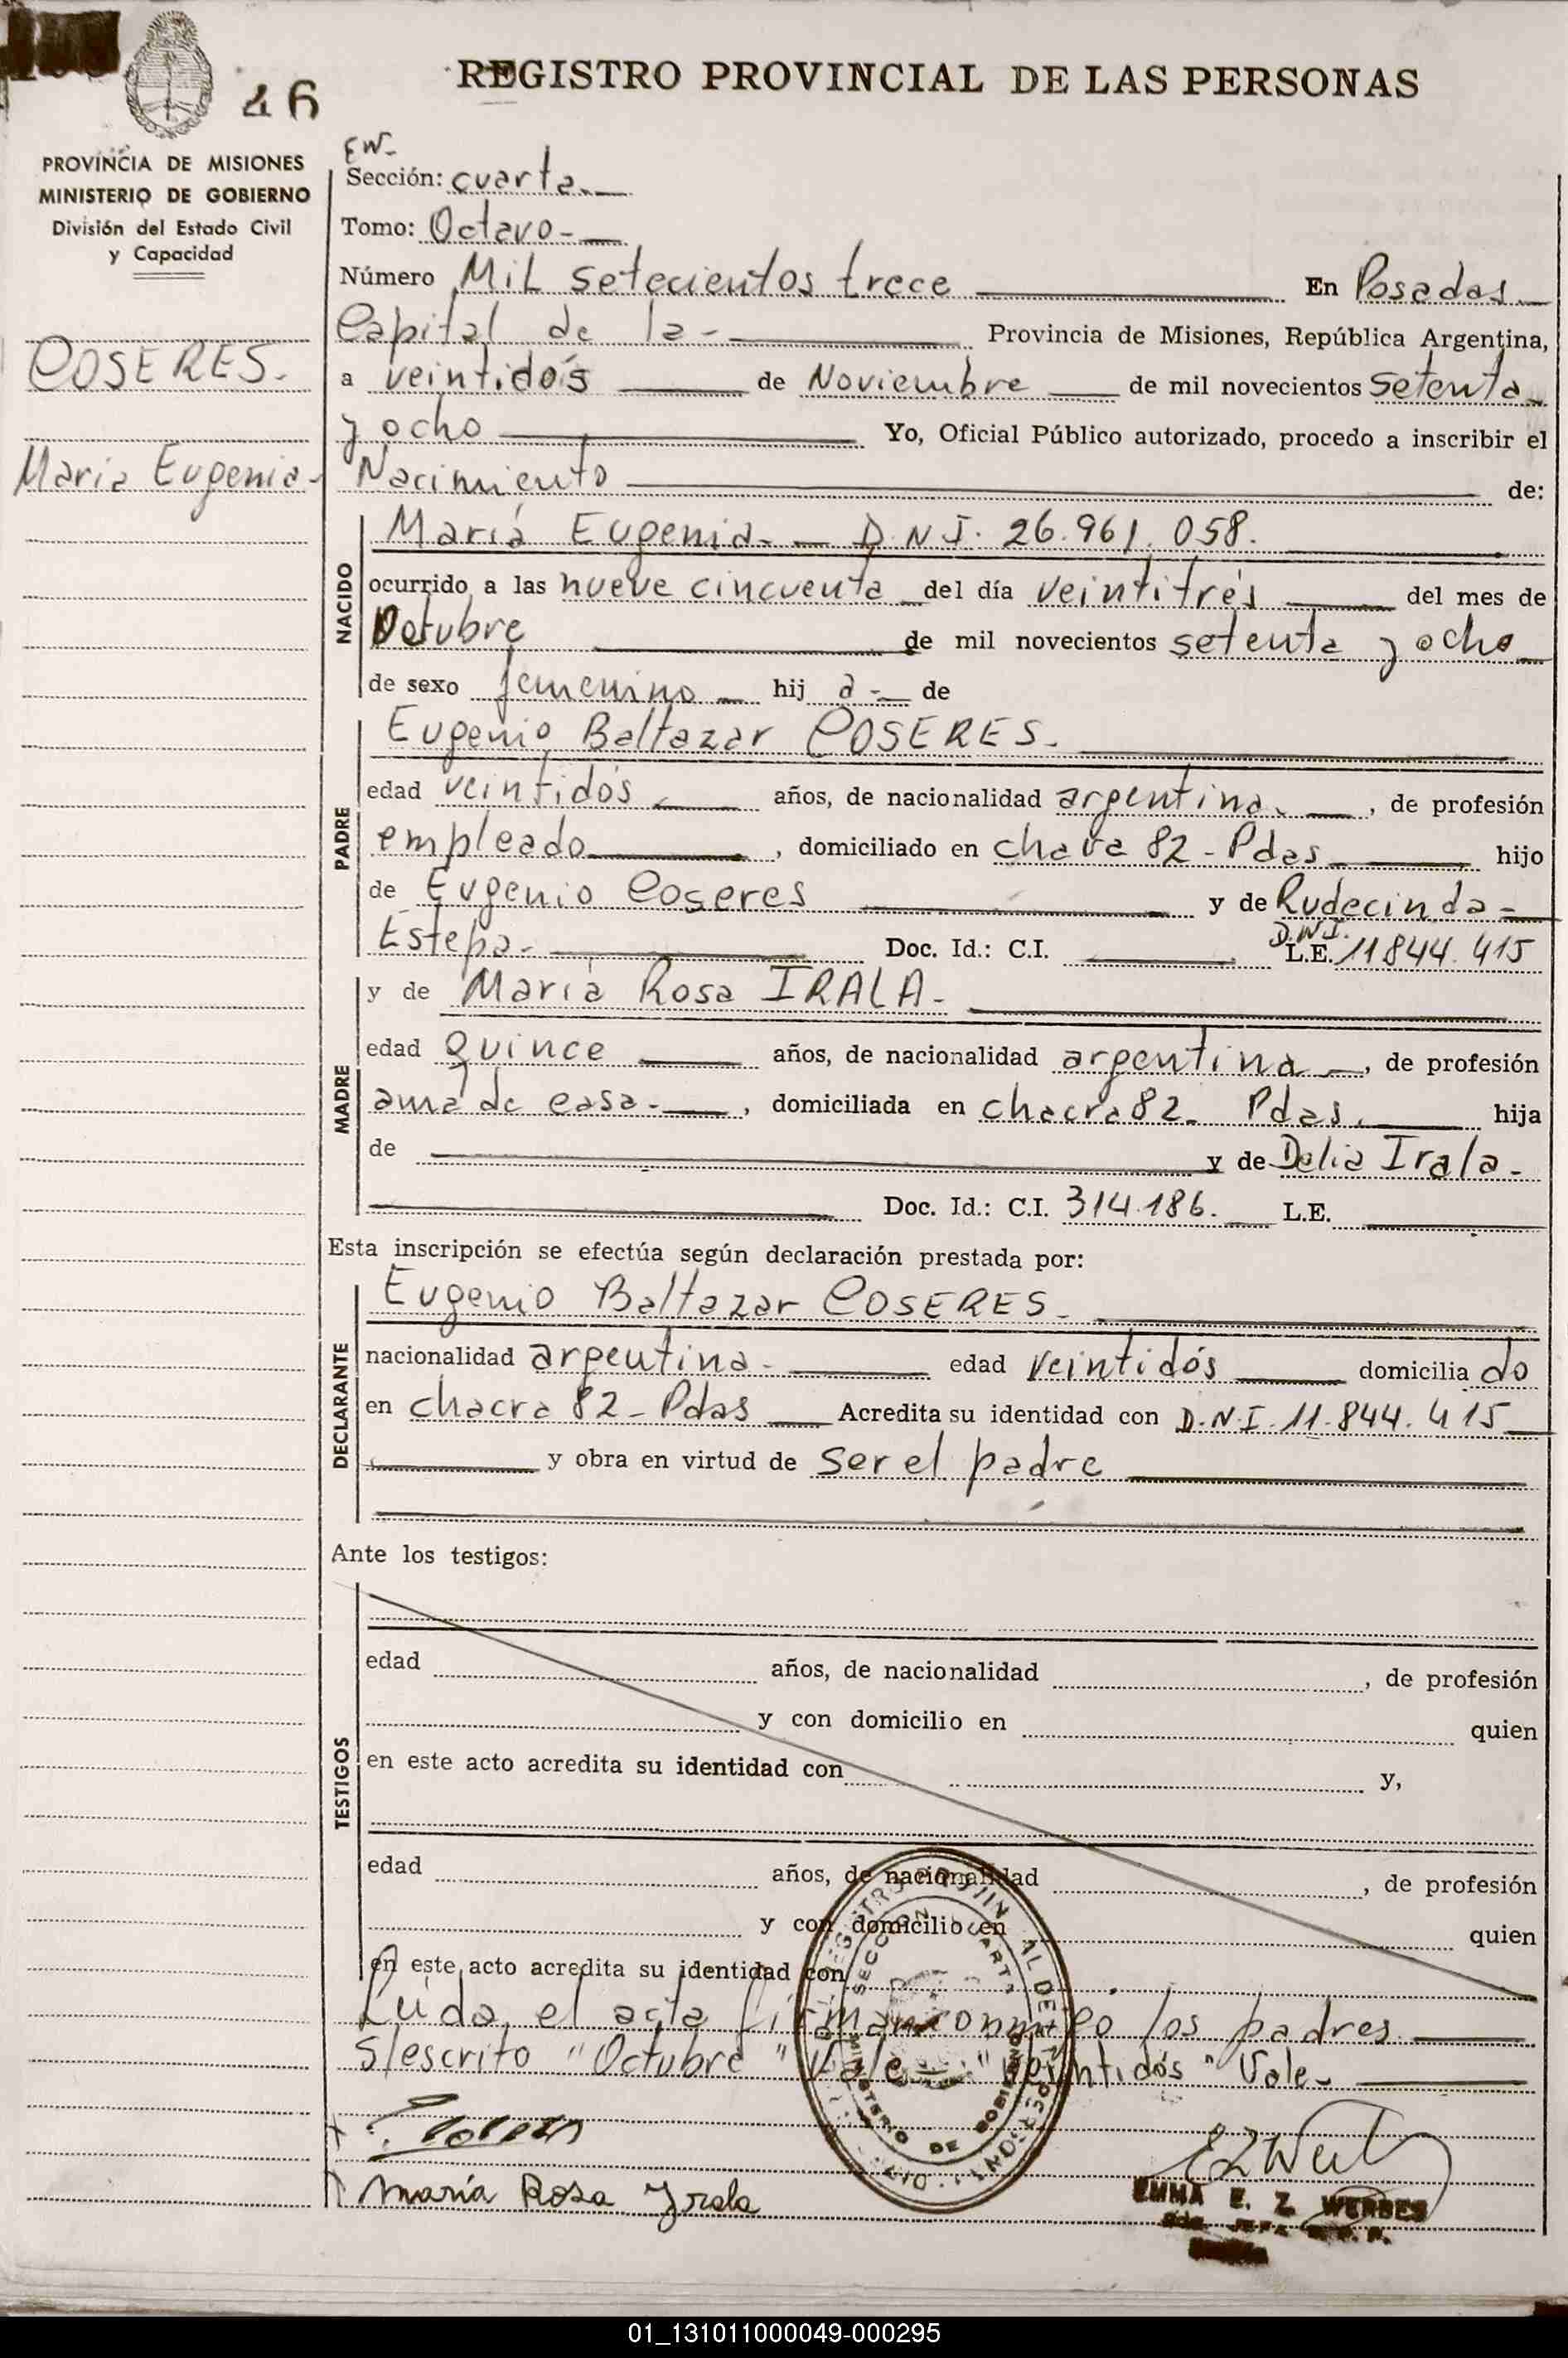 46
REGISTRO PROVINCIAL DE LAS PERSONAS
PROVINCIA DE MISIONES
MINISTERIO DE GOBIERNO
División del Estado Civil
y Capacidad
EW-
Sección: cuarta.
Tomo: Octavo-
Número MiL setecientos trece En Posadas
Capital de la- Provincia de Misiones, República Argentina,
COSERES.
a veintidós de Noviembre de mil novecientos setenta
y ocho Yo, Oficial Público autorizado, procedo a inscribir el
Maria Eugenia-
Nacimiento de:
NACIDO
María Eugenia- D.N.I. 26.961.058.
ocurrido a las nueve cincuenta del día veintitrés del mes de
Octubre de mil novecientos setenta y ocho
de sexo femenino hij a- de
PADRE
Eugenio Baltazar COSERES-
edad veintidós años, de nacionalidad argentina. , de profesión
empleado , domiciliado en chava 82- Pdas hijo
de Eugenio Coseres y de Rudecinda-
Estepa- Doc. Id.: C.I. D.N.I. L.E. 11.844.415
MADRE
y de María Rosa IRALA-
edad quince años, de nacionalidad argentina , de profesión
ama de casa- , domiciliada en chacra 82- Pdas. hija
de y de Delia Irala-
Doc. Id.: C.I. 314.186. L.E.
Esta inscripción se efectúa según declaración prestada por:
DECLARANTE
Eugenio Baltazar COSERES-
nacionalidad argentina- edad veintidós domicilia do
en chacra 82- Pdas Acredita su identidad con D.N.I. 11.844.415
y obra en virtud de ser el padre
Ante los testigos:
TESTIGOS
edad años, de nacionalidad , de profesión
y con domicilio en quien
en este acto acredita su identidad con y,
edad años, de nacionalidad , de profesión
y con domicilio en quien
en este acto acredita su identidad con
Leida el acta firman conmigo los padres
S/escrito "Octubre" Vale "veintidós" Vale-
SECCION CUARTA
MINISTERIO DE GOBIERNO
María Rosa Irala
EMMA E. Z. WERBES
01_131011000049-000295